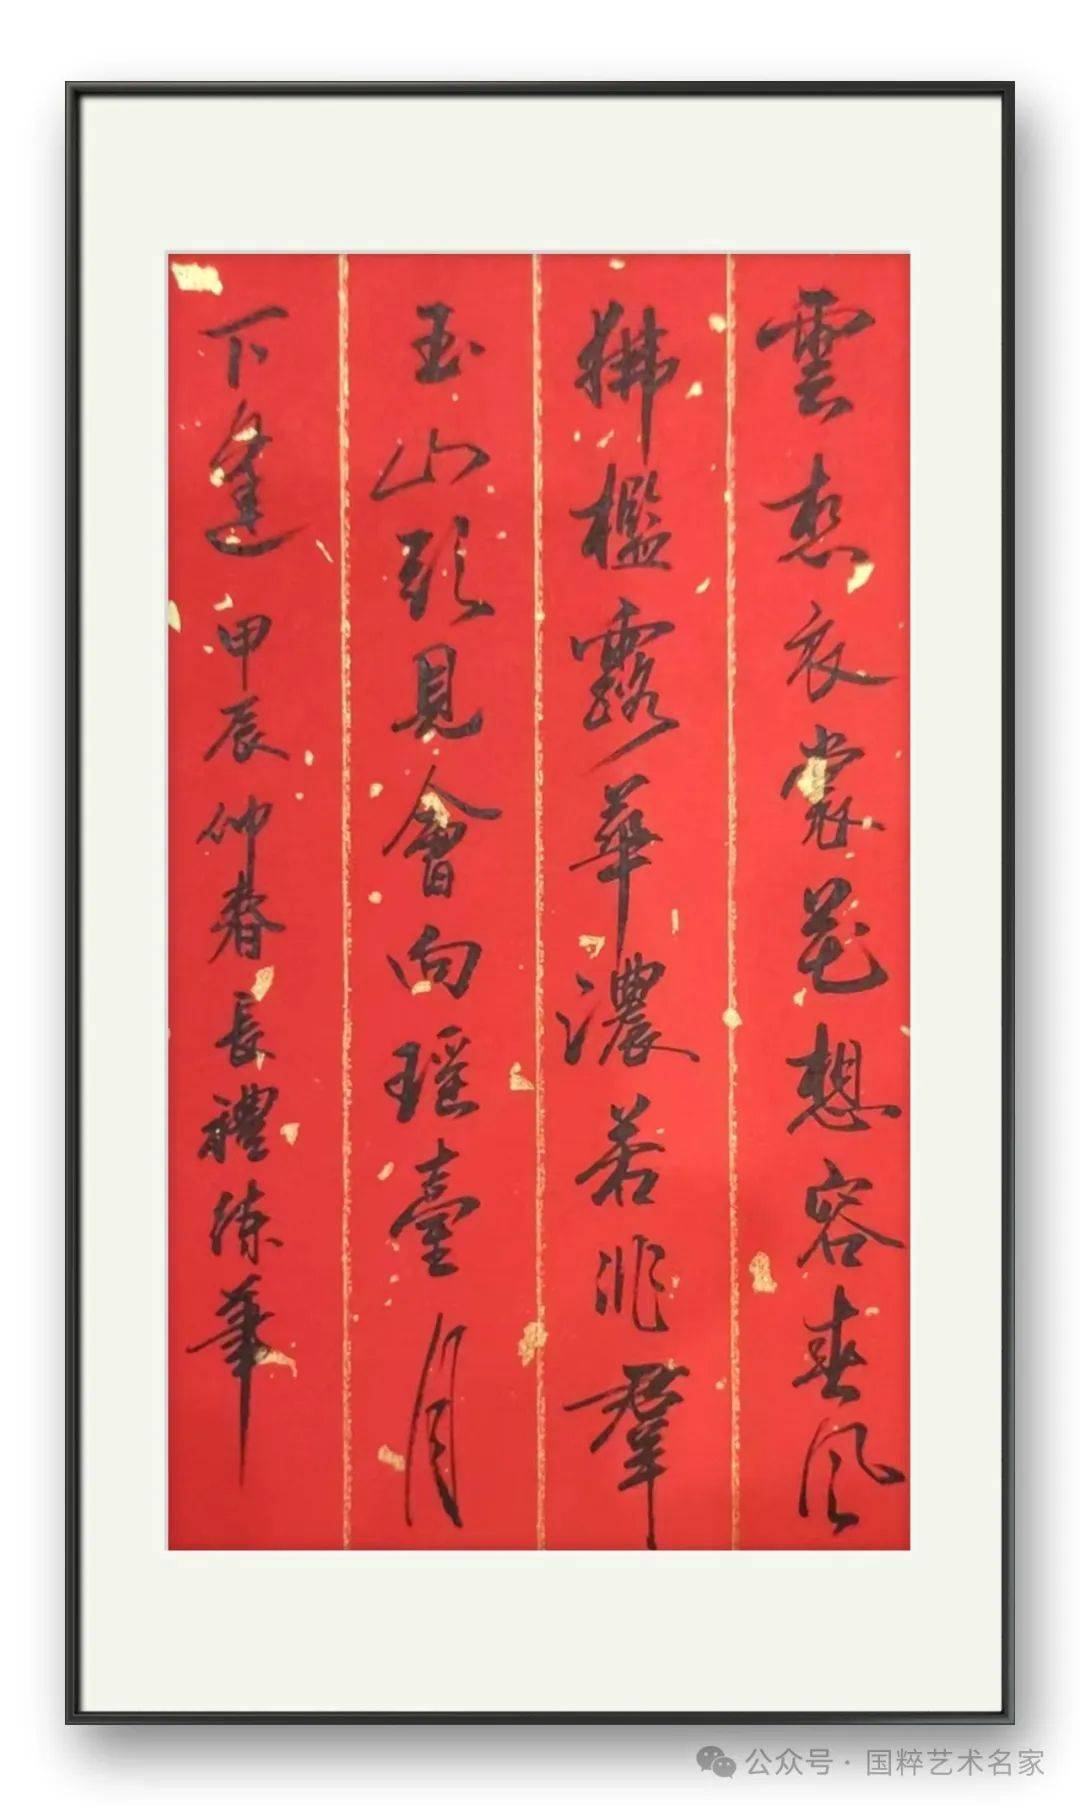 雲想衣裳花想容春风
拂檻露華濃若非羣
玉山頭見會向瑶臺月
下逢 甲辰仲春長禮練筆
公众号 · 国粹艺术名家